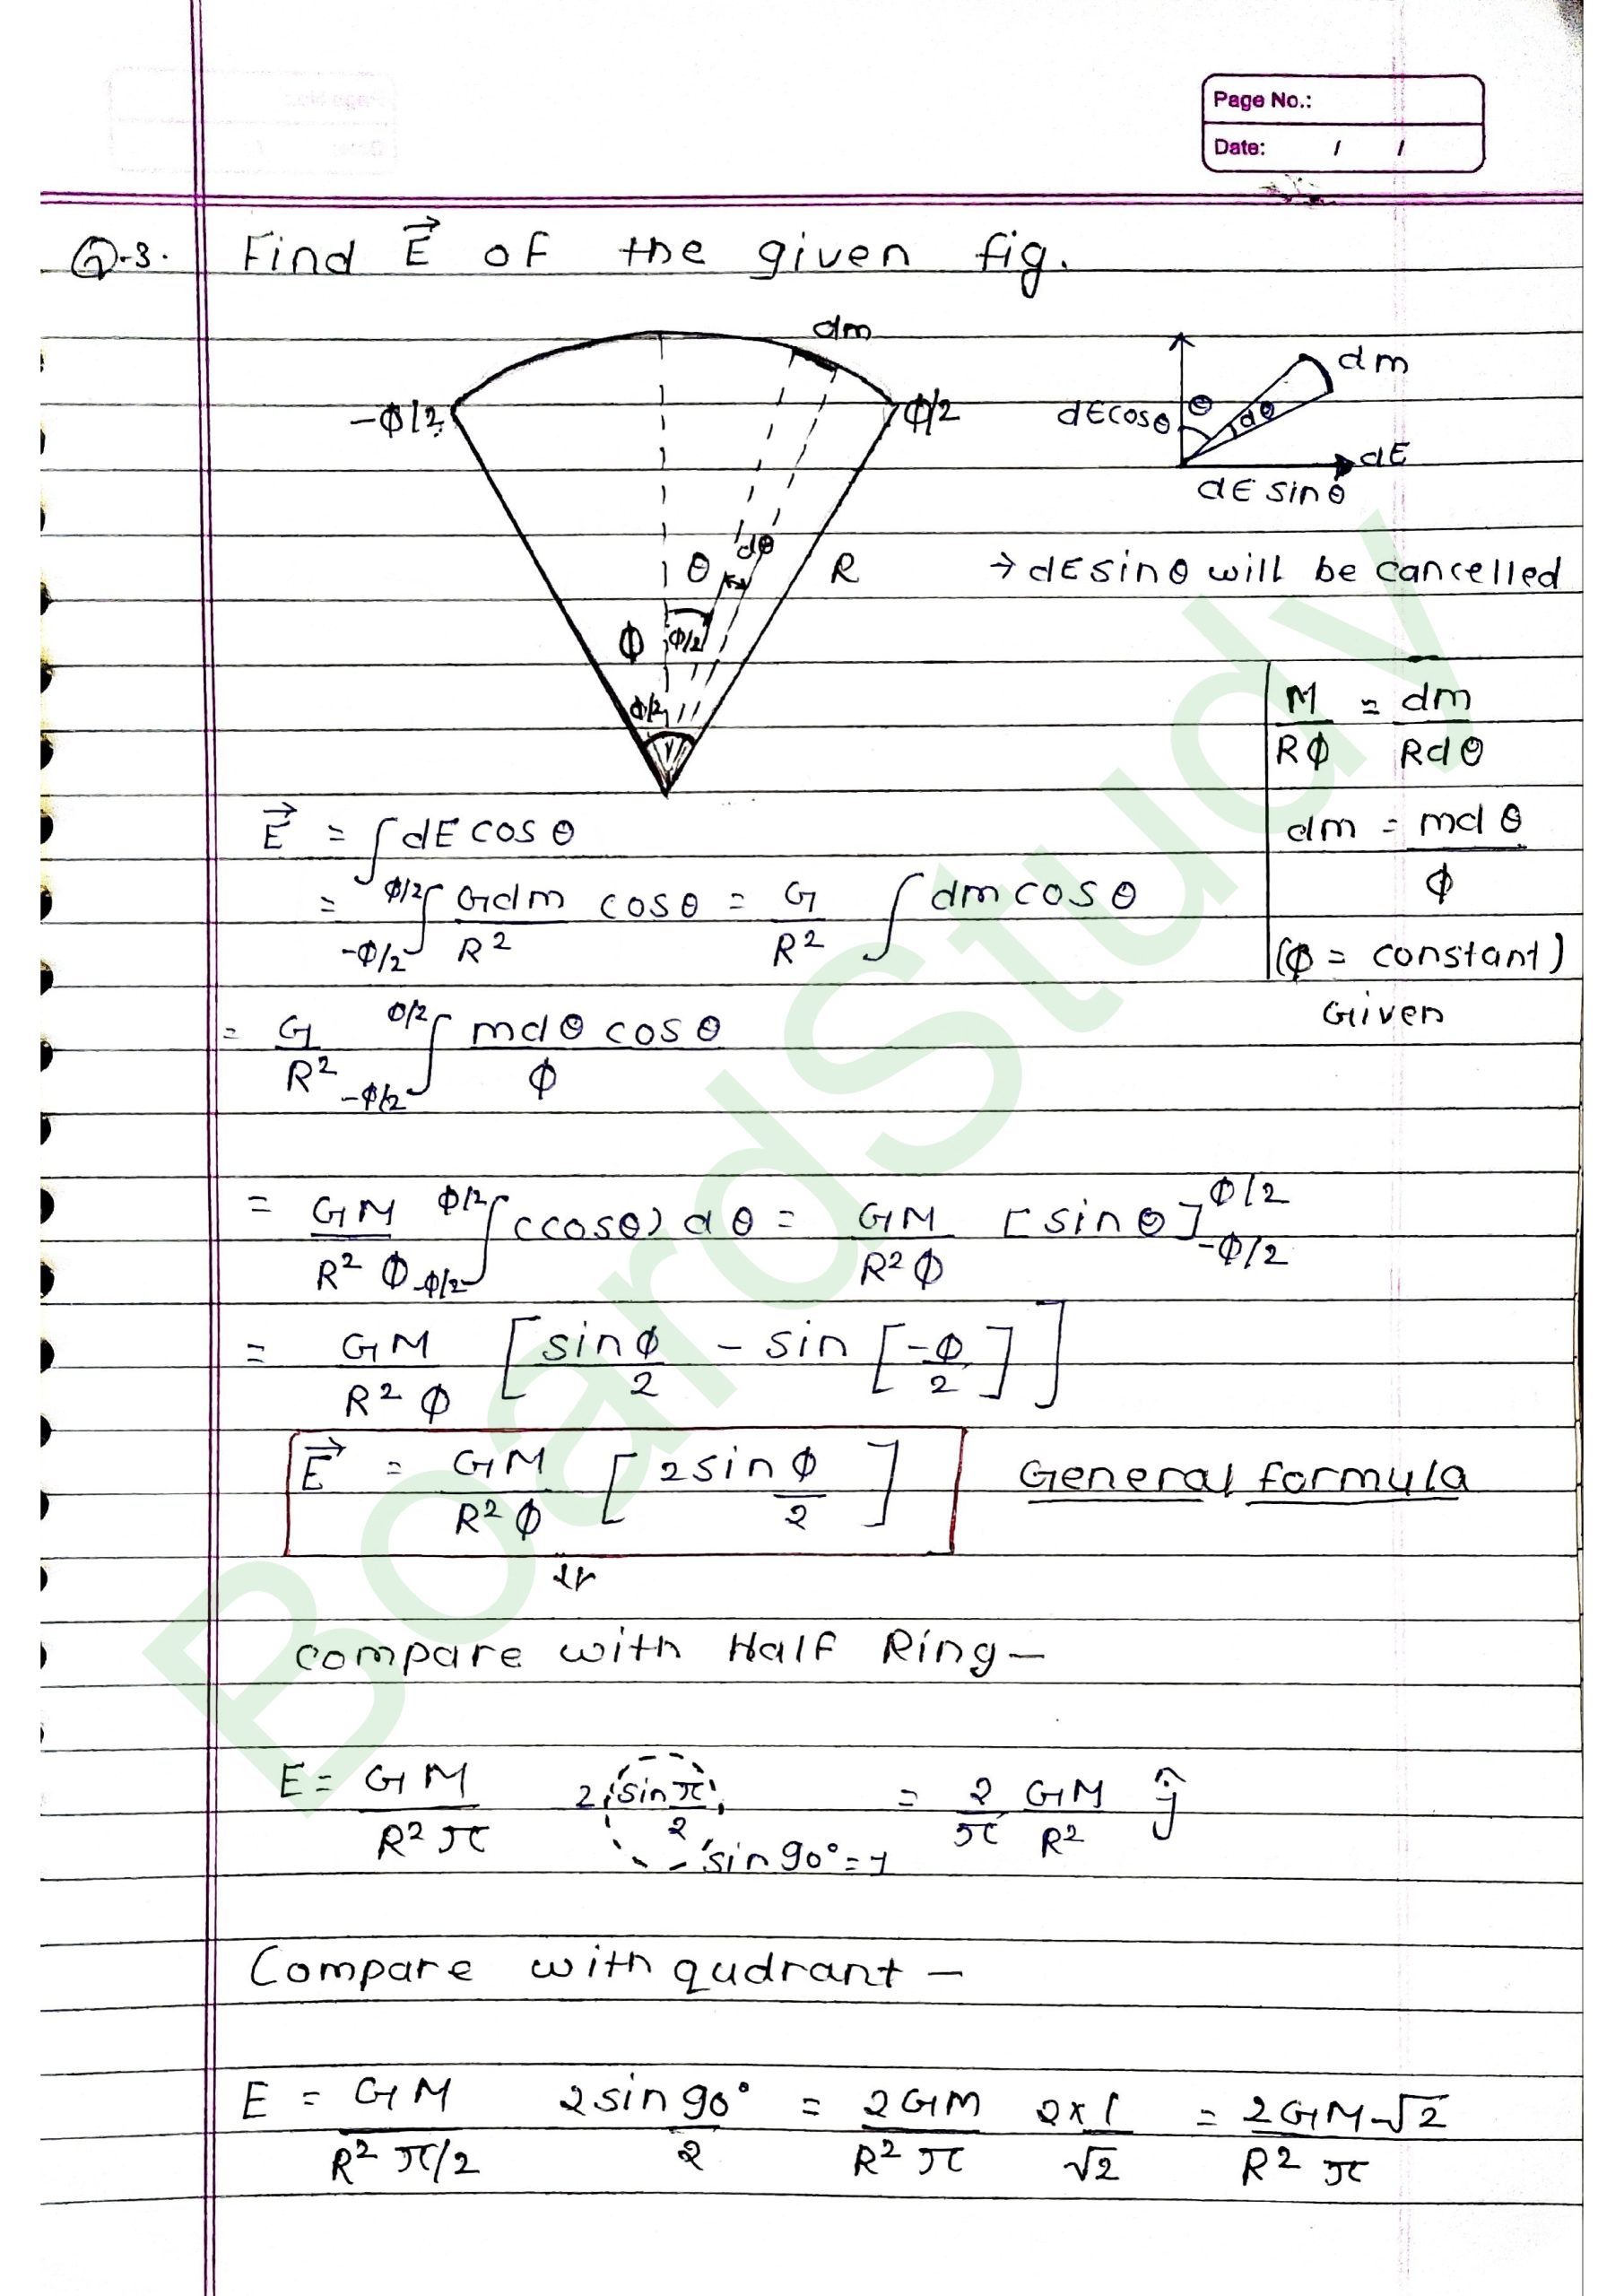 Page No.:
Date: / /
Q-3. Find E⃗ of the given fig.
dm
-Φ/2
Φ/2
dm
dEcosθ
θ
dθ
dE
dE sinθ
dθ
θ
R
→ dEsinθ will be cancelled
Φ
Φ/2
Φ/2
M/RΦ = dm/Rdθ
dm = mdθ/Φ
(Φ = constant)
Given
E⃗ = ∫ dE cosθ
= -Φ/2∫Φ/2 Gdm/R² cosθ = G/R² ∫ dm cosθ
= G/R² -Φ/2∫Φ/2 mdθ cosθ/Φ
= GM/R²Φ -Φ/2∫Φ/2 (cosθ) dθ = GM/R²Φ [sinθ]Φ/2 -Φ/2
= GM/R²Φ [sinΦ/2 - sin [-Φ/2]]
E⃗ = GM/R²Φ [2sinΦ/2] General formula
compare with Half Ring-
E = GM/R²π 2 sinπ/2 = 2/π GM/R² ĵ
sin90°=1
Compare with qudrant -
E = GM/R²π/2 2sin90°/2 = 2GM/R²π 2×1/√2 = 2GM√2/R²π
BoardStudy